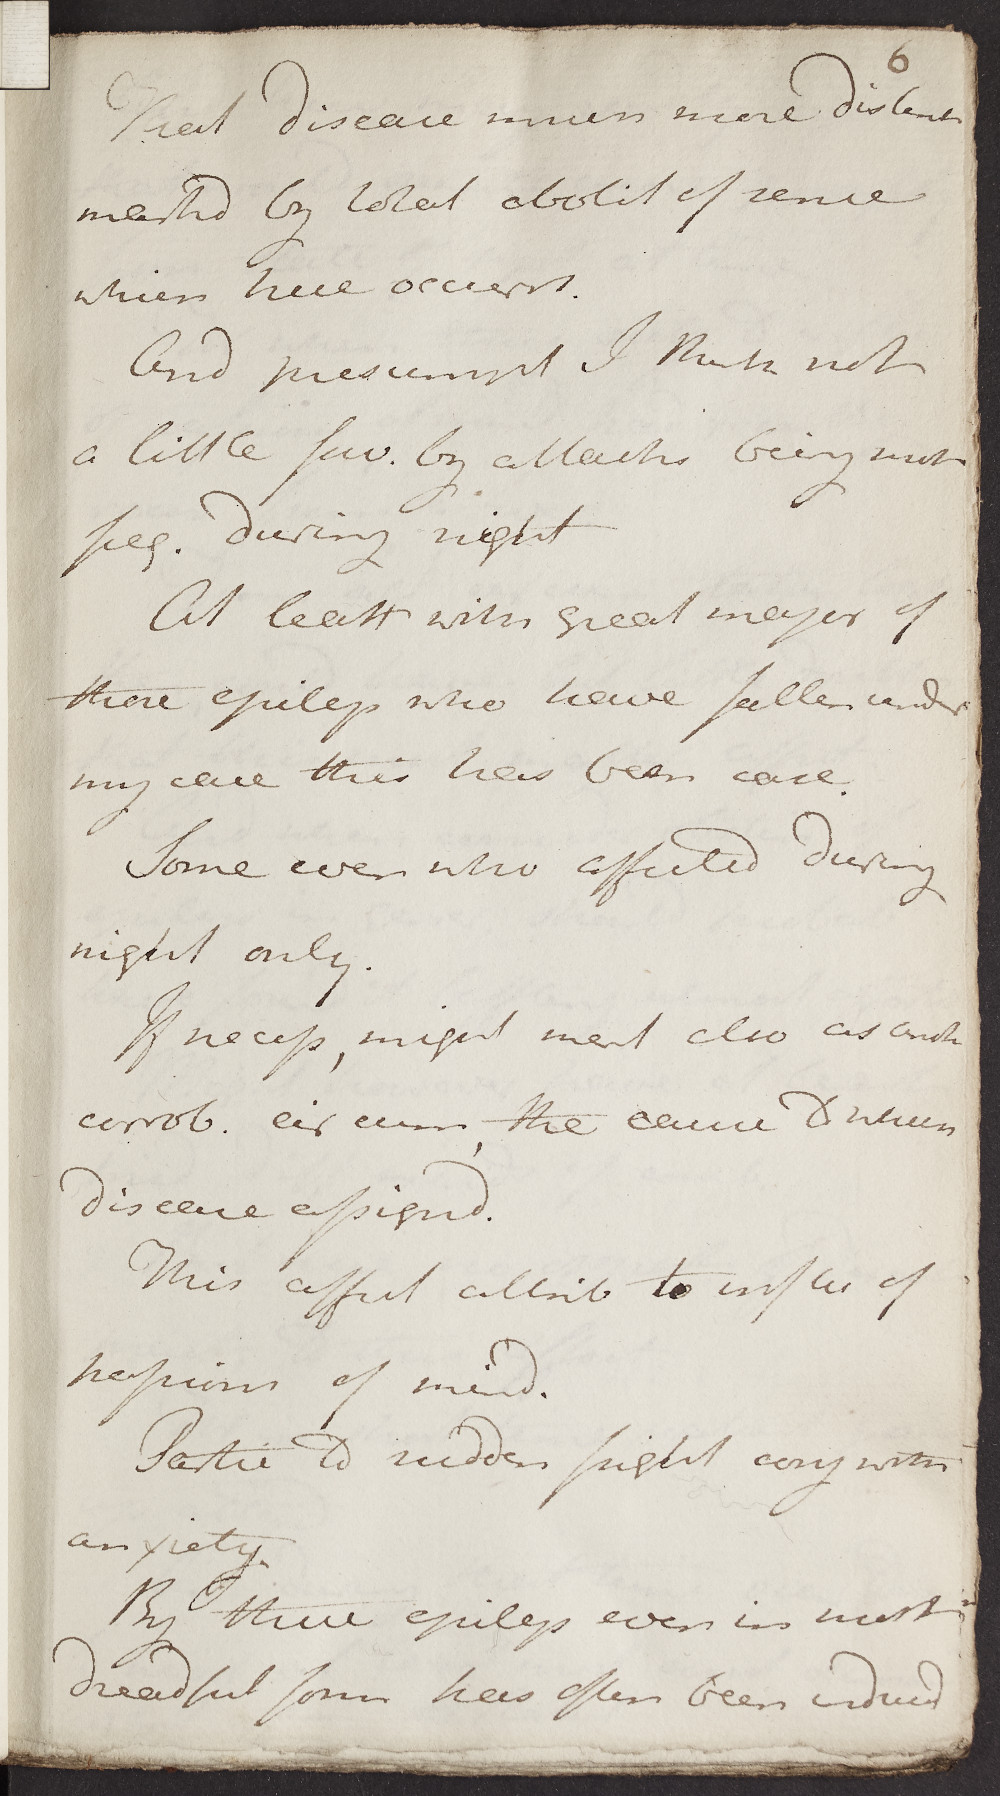 6
That disease much more distinct
markd by total abolit of sense
which here occurrs.
And presumpt I think not
a little fav. by attacks being most
freq. during night
At least with great major of
those epilep who have fallen under
my care this has been case.
Some even who affected during
night only.
If necess, might ment also as anoth
corrob. circum, the cause to which
disease assignd.
This affect attrib to influ of
passions of mind.
Partic to sudden fright conj with
anxiety.
By these epilep even in most
dreadful form has often been inducd